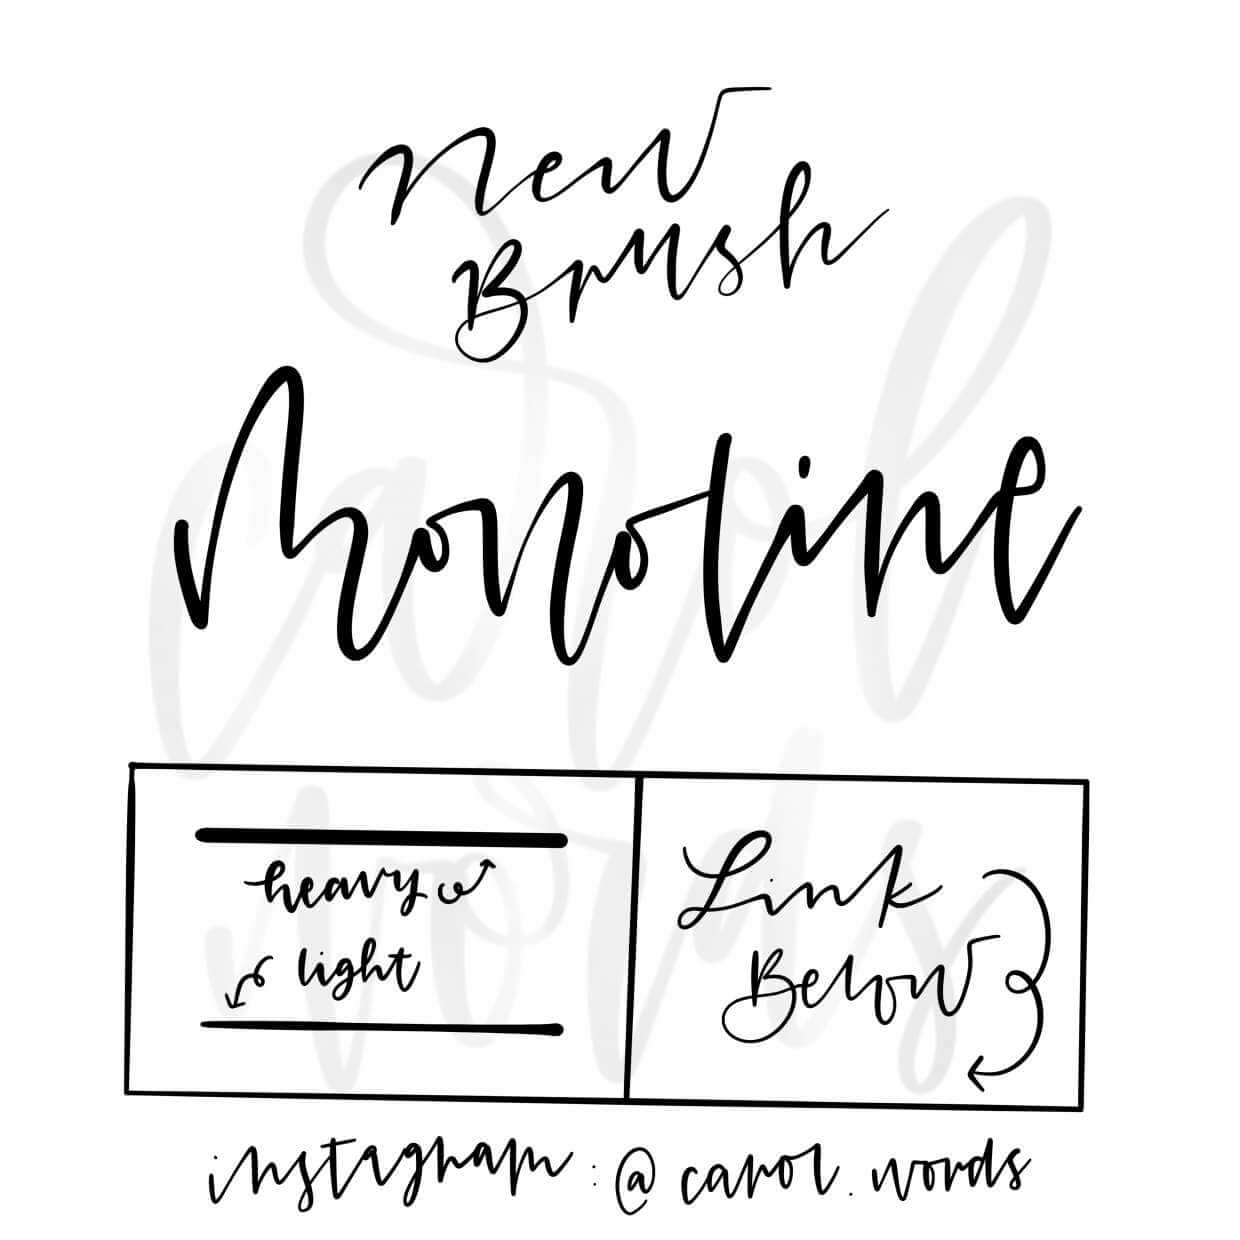 New
Brush
Monoline
heavy
light
Link
Below
instagram : @carol.words
carol
words